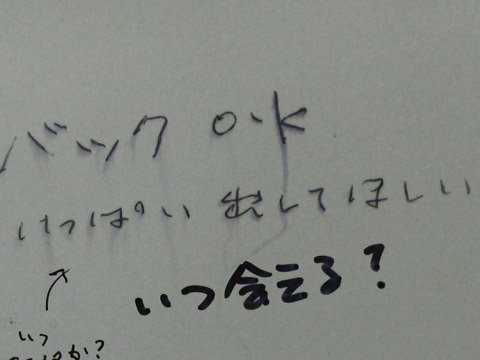 バック O・K
いっぱい 出してほしい
いつ会える?
いつ